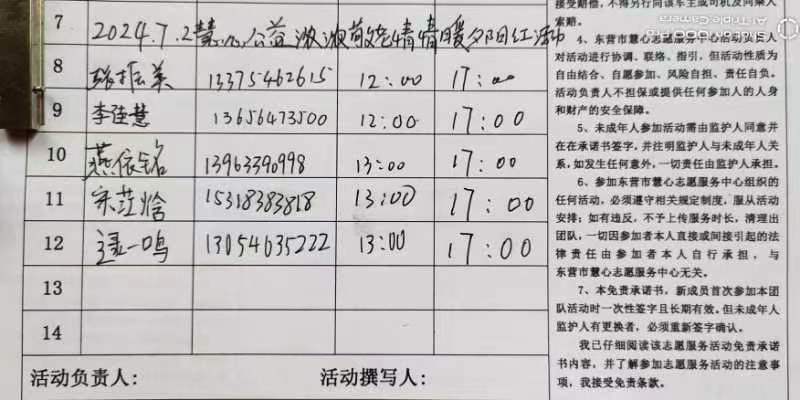 7 2024.7.2慧心公益浓浓敬老情情暖夕阳红活动
8 张振美 13375462615 12:00 17:00
9 李佳慧 13656473500 12:00 17:00
10 燕依铭 13963390998 13:00 17:00
11 宋 15318383818 13:00 17:00
12 一鸣 13054635222 13:00 17:00
13
14
活动负责人: 活动撰写人:
接受赔偿,不得另行向该车主或司机及同乘人
索赔。
4、东营市慧心志愿服务中心活动负责人
对活动进行协调、联络、指引,但活动性质为
自由结合、自愿参加、风险自担、责任自负。
活动负责人不担保或提供任何参加人的人身
和财产的安全保障。
5、未成年人参加活动需由监护人同意并
在在承诺书签字,并注明监护人与未成年人关
系,如发生任何意外,一切责任由监护人承担。
6、参加东营市慧心志愿服务中心组织的
任何活动,必须遵守相关规定制度,服从活动
安排;如有违反,不予上传服务时长,清理出
团队,一切因参加者本人直接或间接引起的法
律责任由参加者本人自行承担,与
东营市慧心志愿服务中心无关。
7、本免责承诺书,新成员首次参加本团
队活动时一次性签字且长期有效。但未成年人
监护人有更换者,必须重新签字确认。
我已仔细阅读该志愿服务活动免责承诺
书内容,并了解参加志愿服务活动的注意事
项,我接受免责条款。